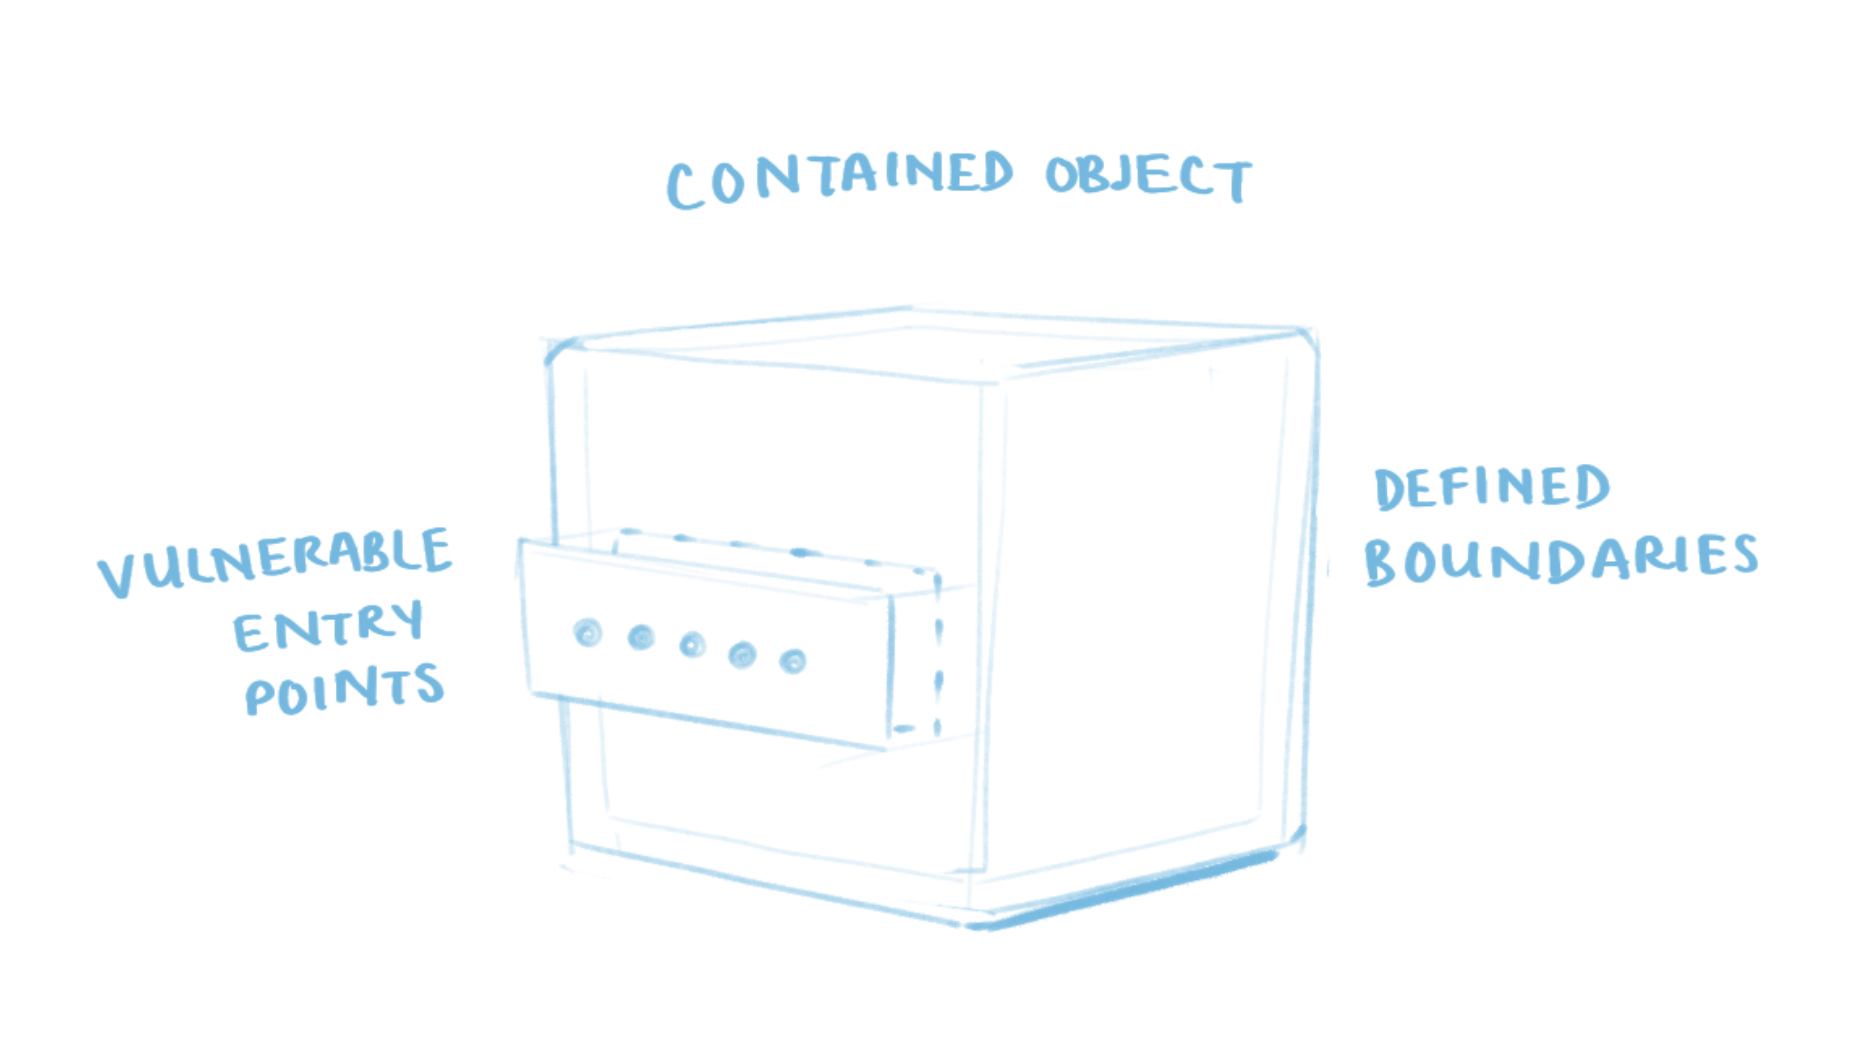 CONTAINED OBJECT
VULNERABLE
ENTRY
POINTS
DEFINED
BOUNDARIES